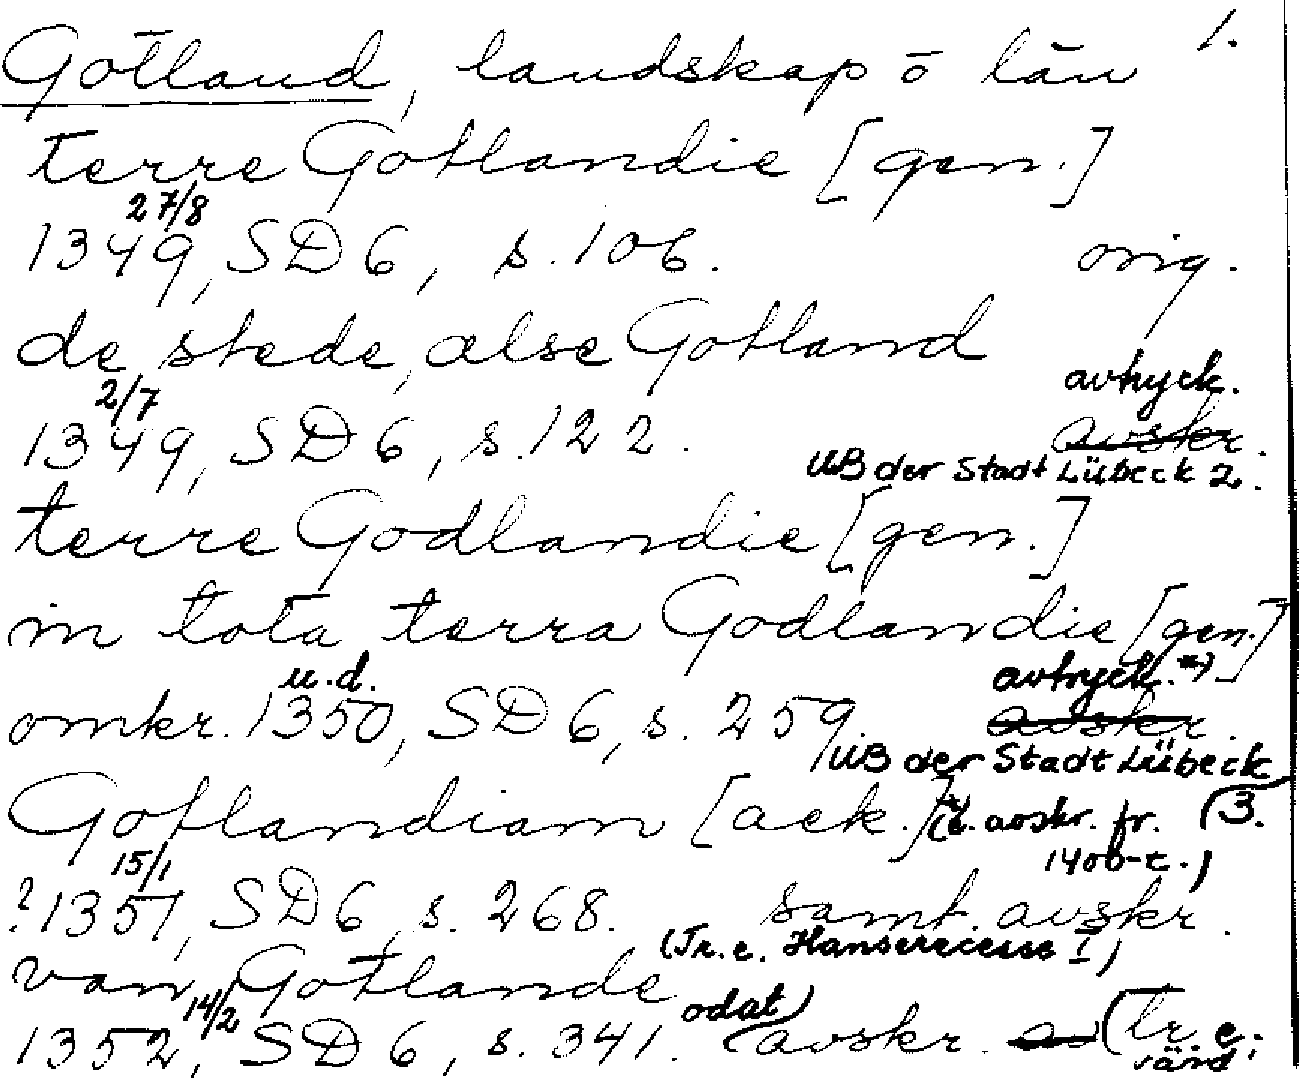 1.
Gotland, landskap o län
terre Gotlandie [gen.]
27/8
1349, SD 6, s. 106. orig.
de stede, alse Gotland
2/7 avtryck.
1349, SD 6, s. 122. avskr.
UB der Stadt Lübeck 2.
terre Godlandie [gen.]
in tota terra Godlandie [gen.]
u.d. avtryck. *)
omkr. 1350, SD 6, s. 259. avskr.
UB der Stadt Lübeck
Gotlandiam [ack.] *) (e. avskr. fr. 3.
15/1 1400-t.)
?1351, SD 6, s. 268. samt. avskr.
(Tr. e. Hanserecesse I)
van Gotlande
14/2 odat)
1352, SD 6, s. 341. (avskr. (tr. e.